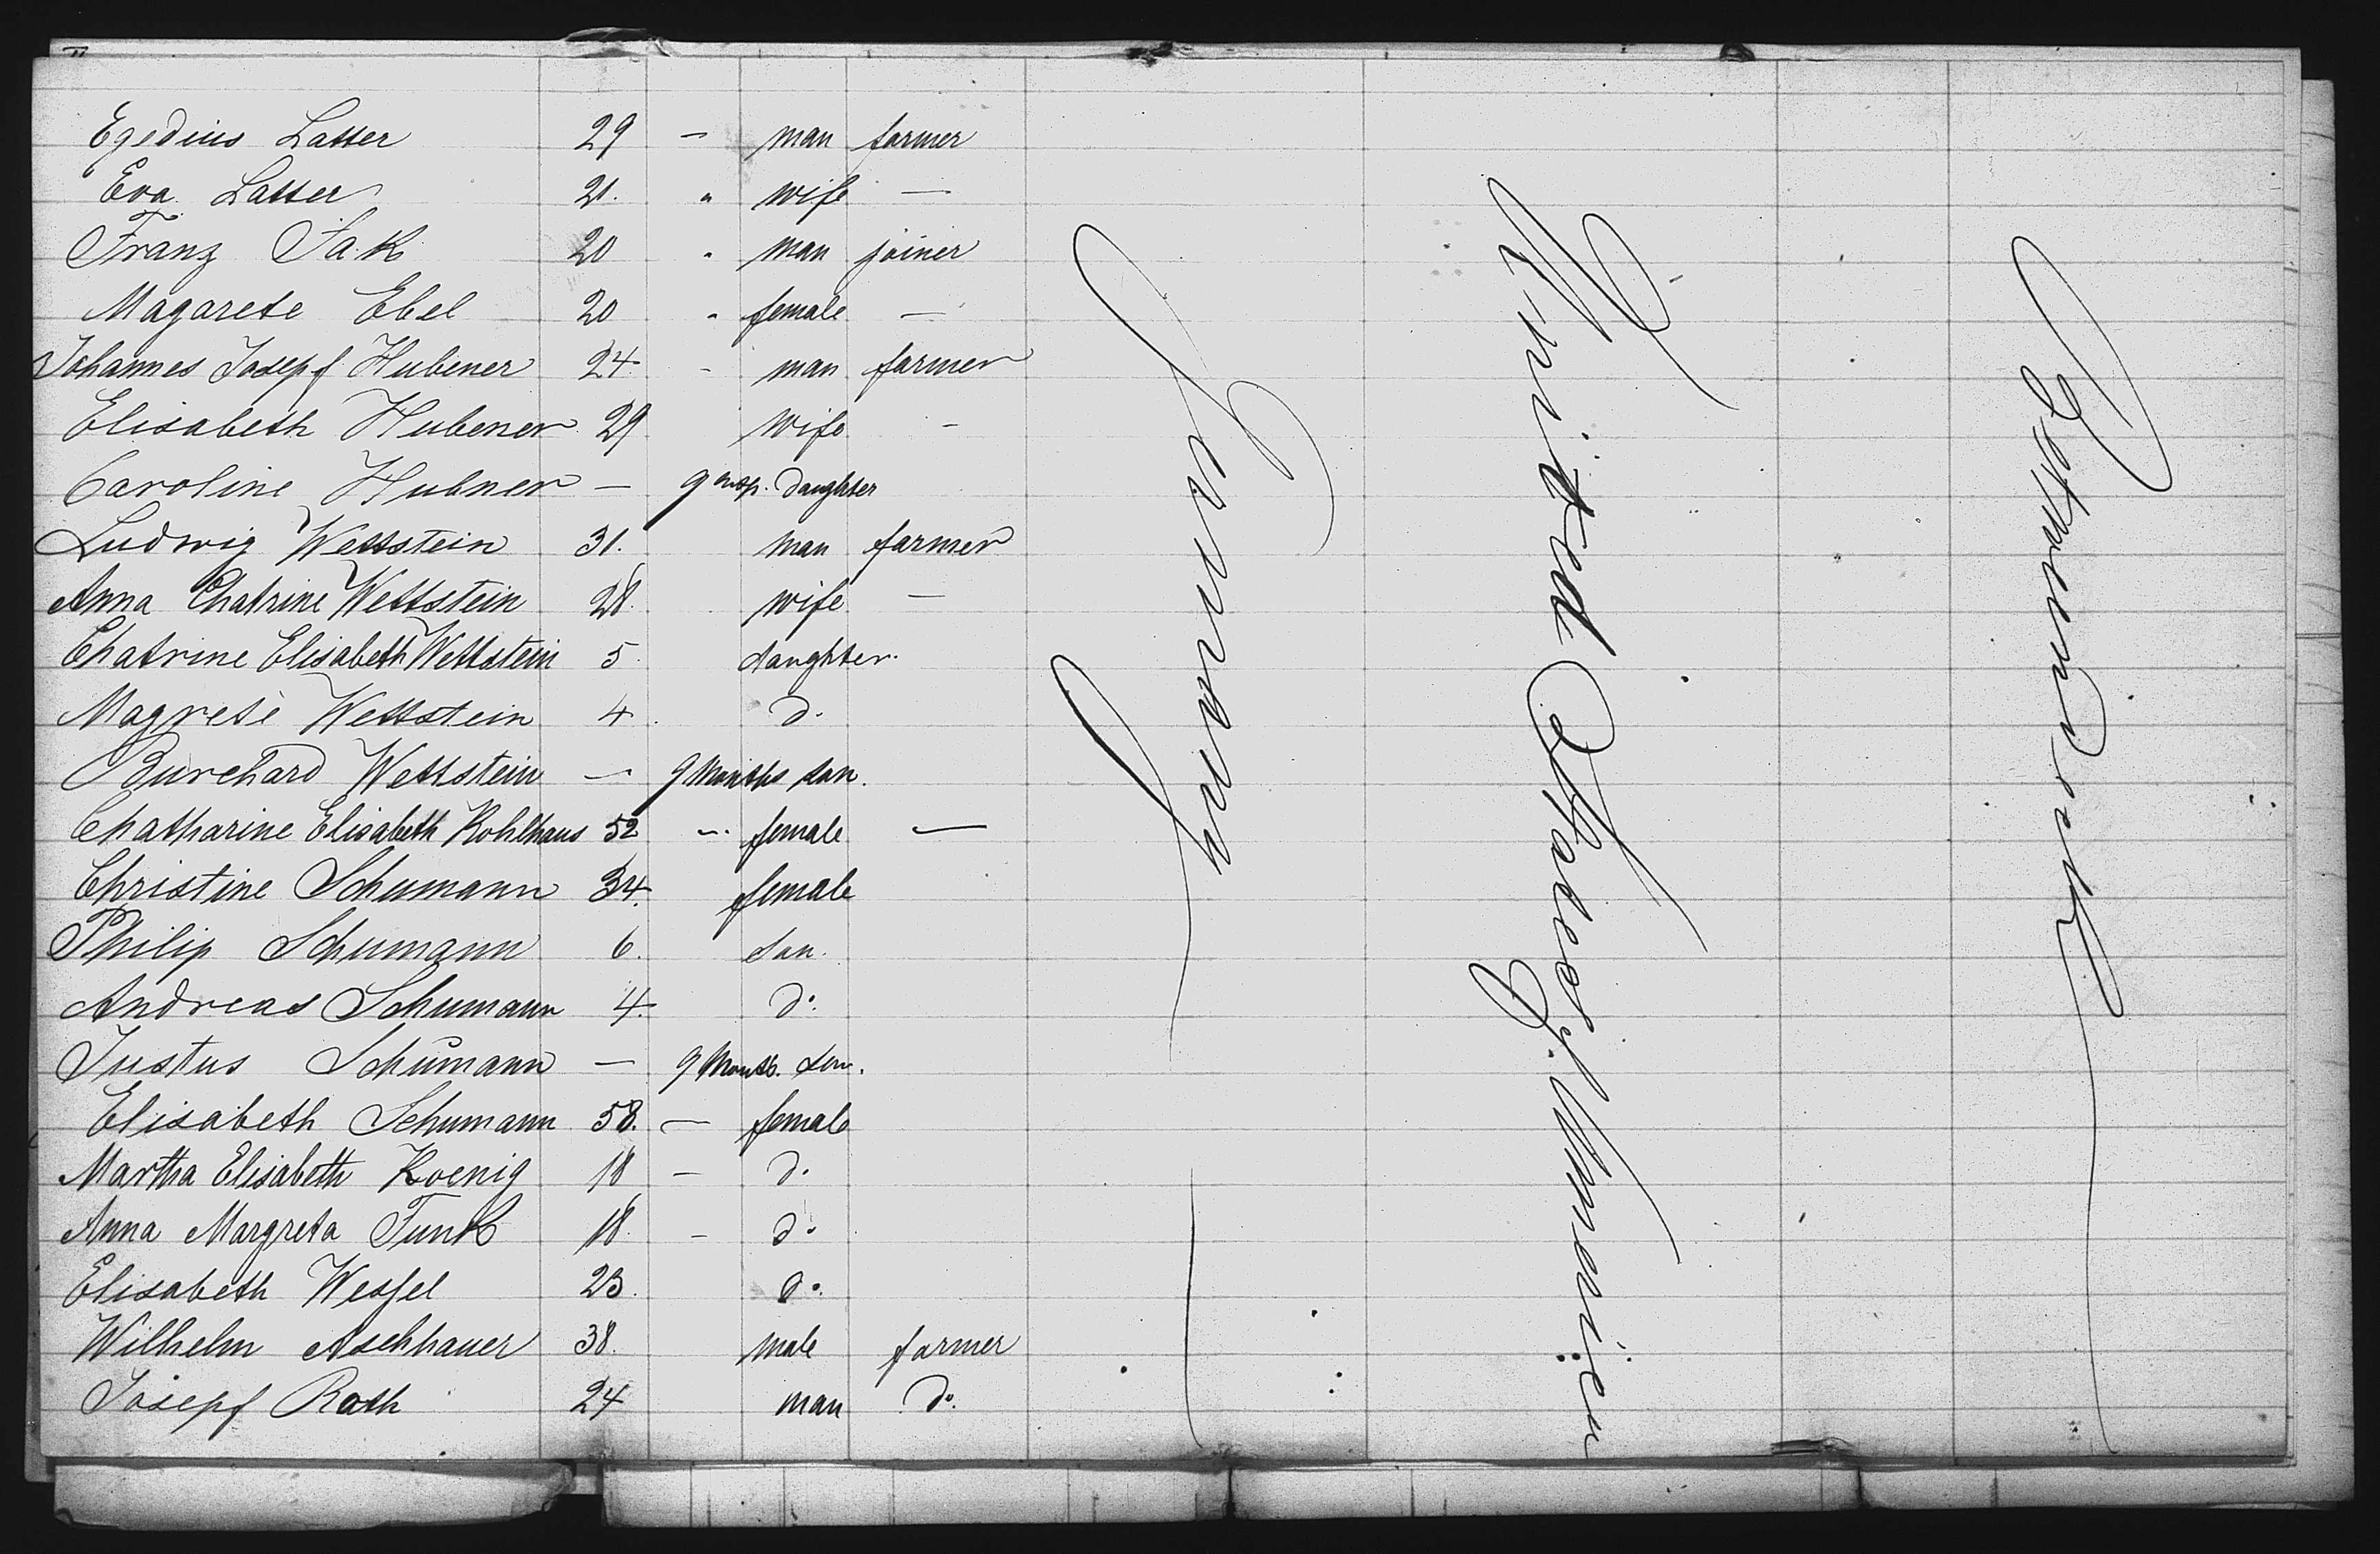 Egedius Lasser 29 — man farmer
Eva Lasser 21. " wife —
Franz Sak 20 " man joiner
Magarete Ebel 20 " female —
Johannes Josepf Hubener 24 - man farmer
Elisabeth Hubener 29 wife -
Caroline Hubner — 9 daughter
Ludwig Wettstein 31. man farmer
Anna Chatrine Wettstein 28. wife —
Chatrine Elisabeth Wettstein 5. daughter.
Magrete Wettstein 4. do.
Burchard Wettstein — 9 Months son.
Chatharine Elisabeth Kohlhaus 52 — female —
Christine Schumann 34. female
Philip Schumann 6. son.
Andreas Schumann 4. do.
Justus Schumann — 9 Month. son.
Elisabeth Schumann 58. — female
Martha Elisabeth Koenig 18 — do.
Anna Margreta Funk 18. - do.
Elisabeth Wessel 23. do.
Wilhelm Aschhauer 38. male farmer
Josepf Rath 24 man do.
Germany
United States of America